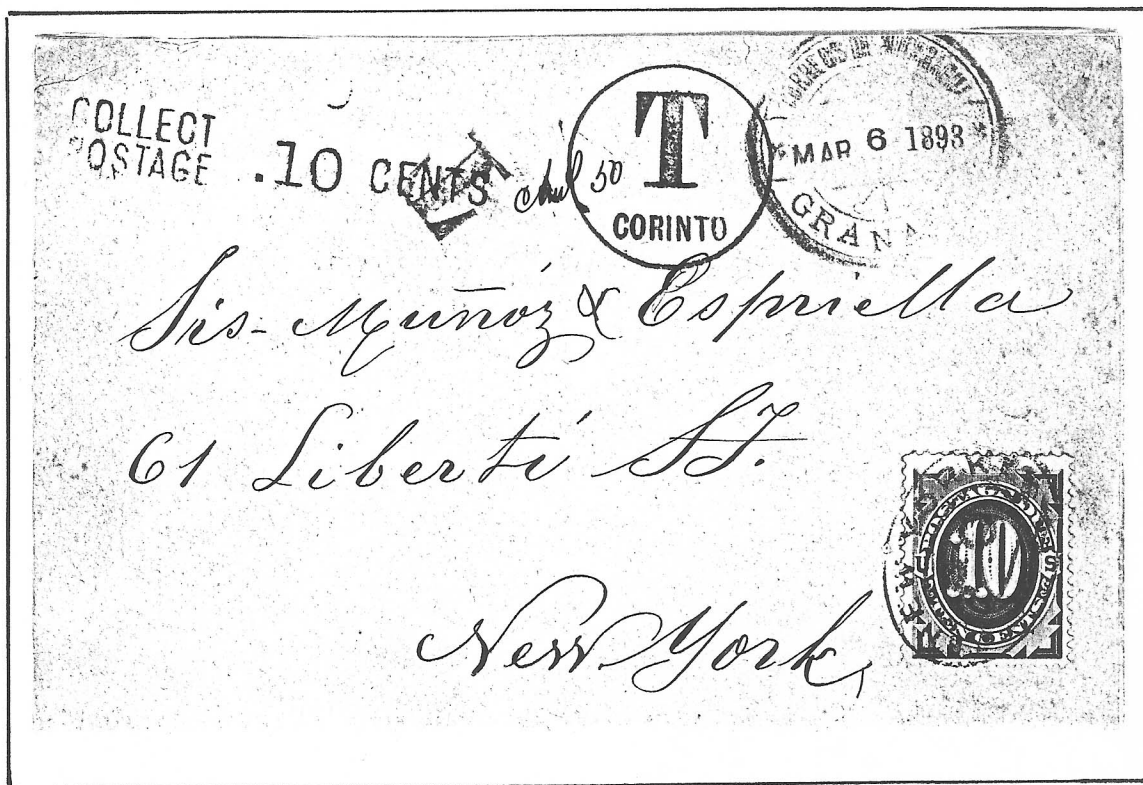 COLLECT
POSTAGE
.10 CENTS
50
T
CORINTO
CORREOS DE NICARAGUA
MAR 6 1893
GRANA
Sis- Muñóz & Espriella
61 Liberti St.
New York,
POSTAGE DUE
10
TEN CENTS
U S
NEW YORK